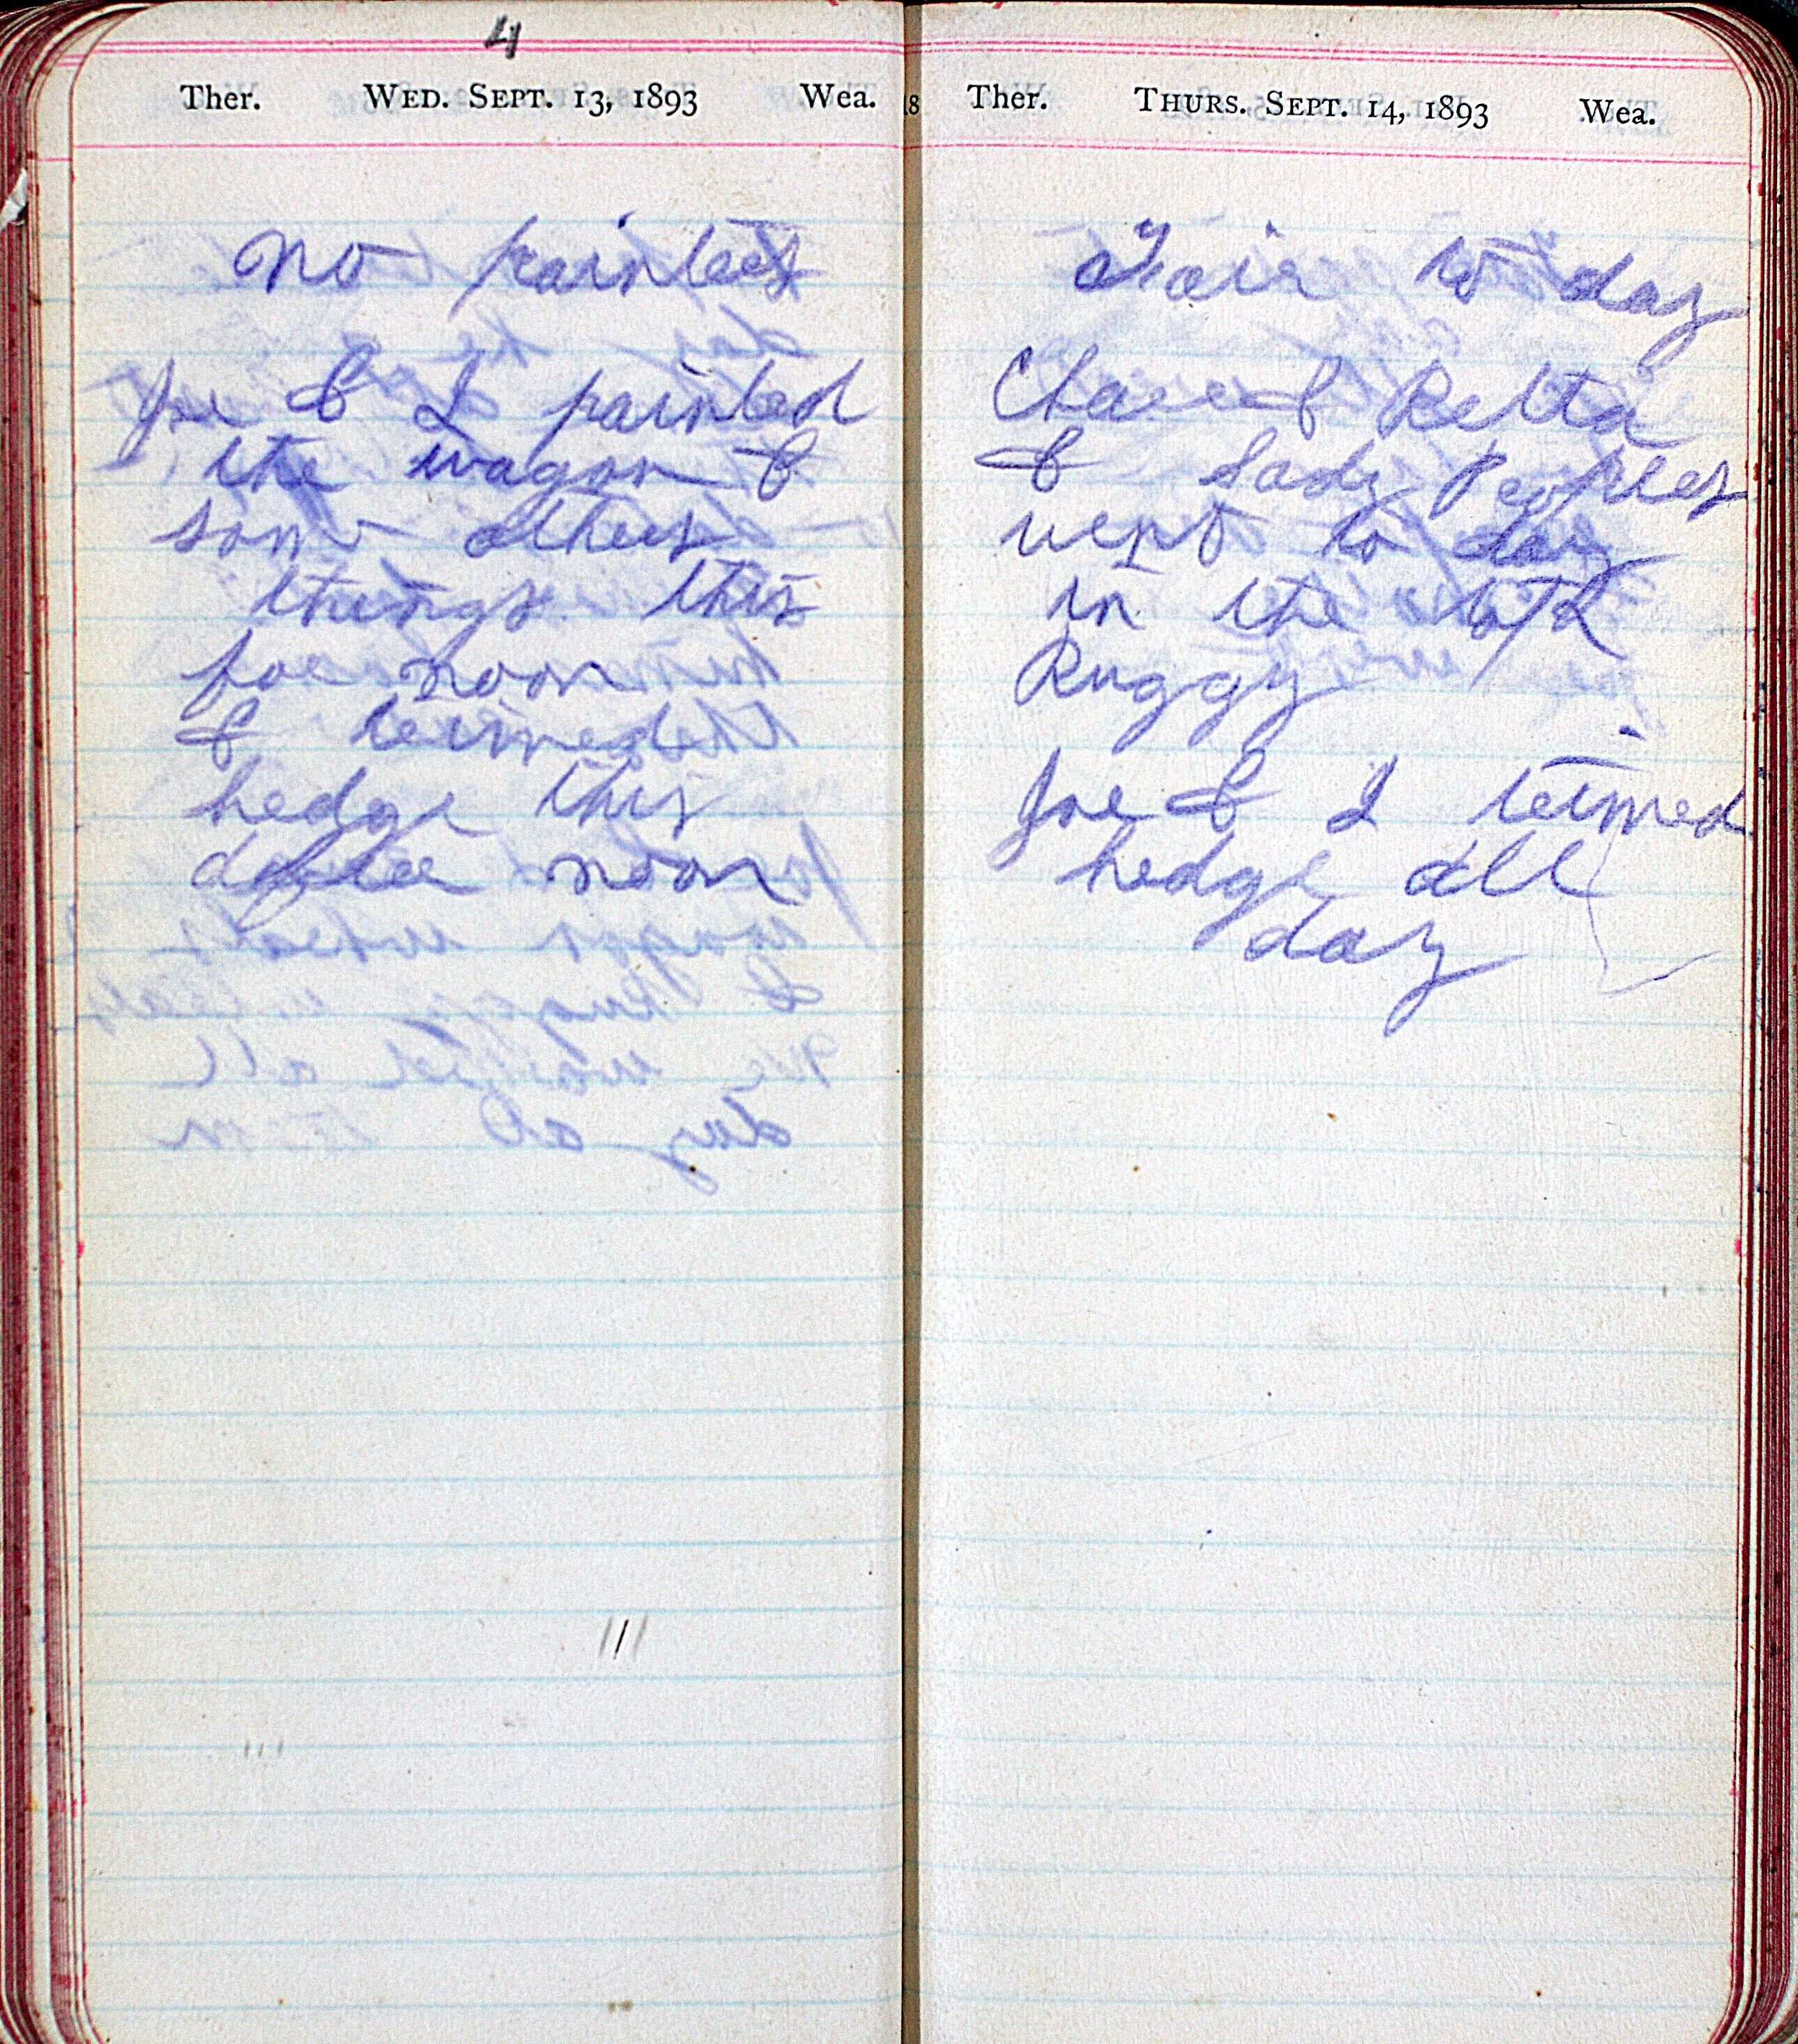 4
Ther. WED. SEPT. 13, 1893 Wea.
No painters
Joe & I painted
the wagon &
some others
things this
foe noon
& trimed
hedge this
after noon
18
Ther. THURS. SEPT. 14, 1893 Wea.
Fair to day
& Retta
& Sady Peoples
went to day
in the
Buggy
Joe & I trimed
hedge all
day